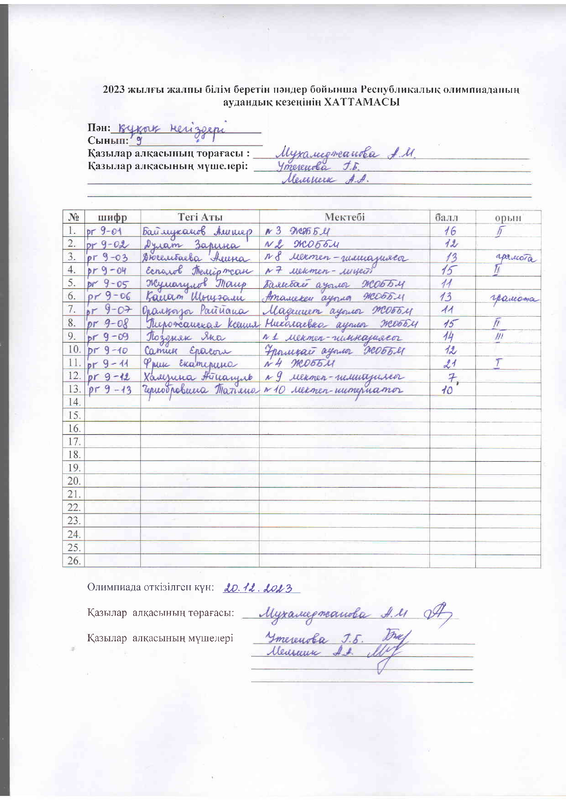 2023 жылғы жалпы білім беретін пәндер бойынша Республикалық олимпиаданың
аудандық кезеңінің ХАТТАМАСЫ
Пән: Құқық негіздері
Сынып: 9
Қазылар алқасының торағасы : Мухамеджанова А.М.
Қазылар алқасының мүшелері: Утегенова Г.Б.
Мельник А.А.
№ шифр Тегі Аты Мектебі балл орын
1. рг 9-01 Баймуканов Алишер №3 ЖОББМ 16 II
2. рг 9-02 Дулат Зарина №2 ЖОББМ 12
3. рг 9-03 Дюсембаева Амина №8 мектеп-гимназиясы 13 грамота
4. рг 9-04 Есполов Теміржан №7 мектеп-лицей 15 II
5. рг 9-05 Жумагулов Таир ауылы ЖОББМ 11
6. рг 9-06 Қанат Шыңғали Атамекен ауылы ЖОББМ 13 грамота
7. рг 9-07 Оралқызы ауылы ЖОББМ 11
8. рг 9-08 Пирожанская Ксения Николаевка ауылы ЖОББМ 15 II
9. рг 9-09 Поздняк Яна №1 мектеп-гимназиясы 14 III
10. рг 9-10 Сатин Ерасыл ауылы ЖОББМ 12
11. рг 9-11 Фриц Екатерина №4 ЖОББМ 21 I
12. рг 9-12 Хамзина №9 мектеп-гимназиясы 7
13. рг 9-13 №10 мектеп-интернаты 10
14.
15.
16.
17.
18.
19.
20.
21.
22.
23.
24.
25.
26.
Олимпиада откізілген күн: 20.12.2023
Қазылар алқасының торағасы: Мухамеджанова А.М
Қазылар алқасының мүшелері Утегенова Г.Б.
Мельник А.А.